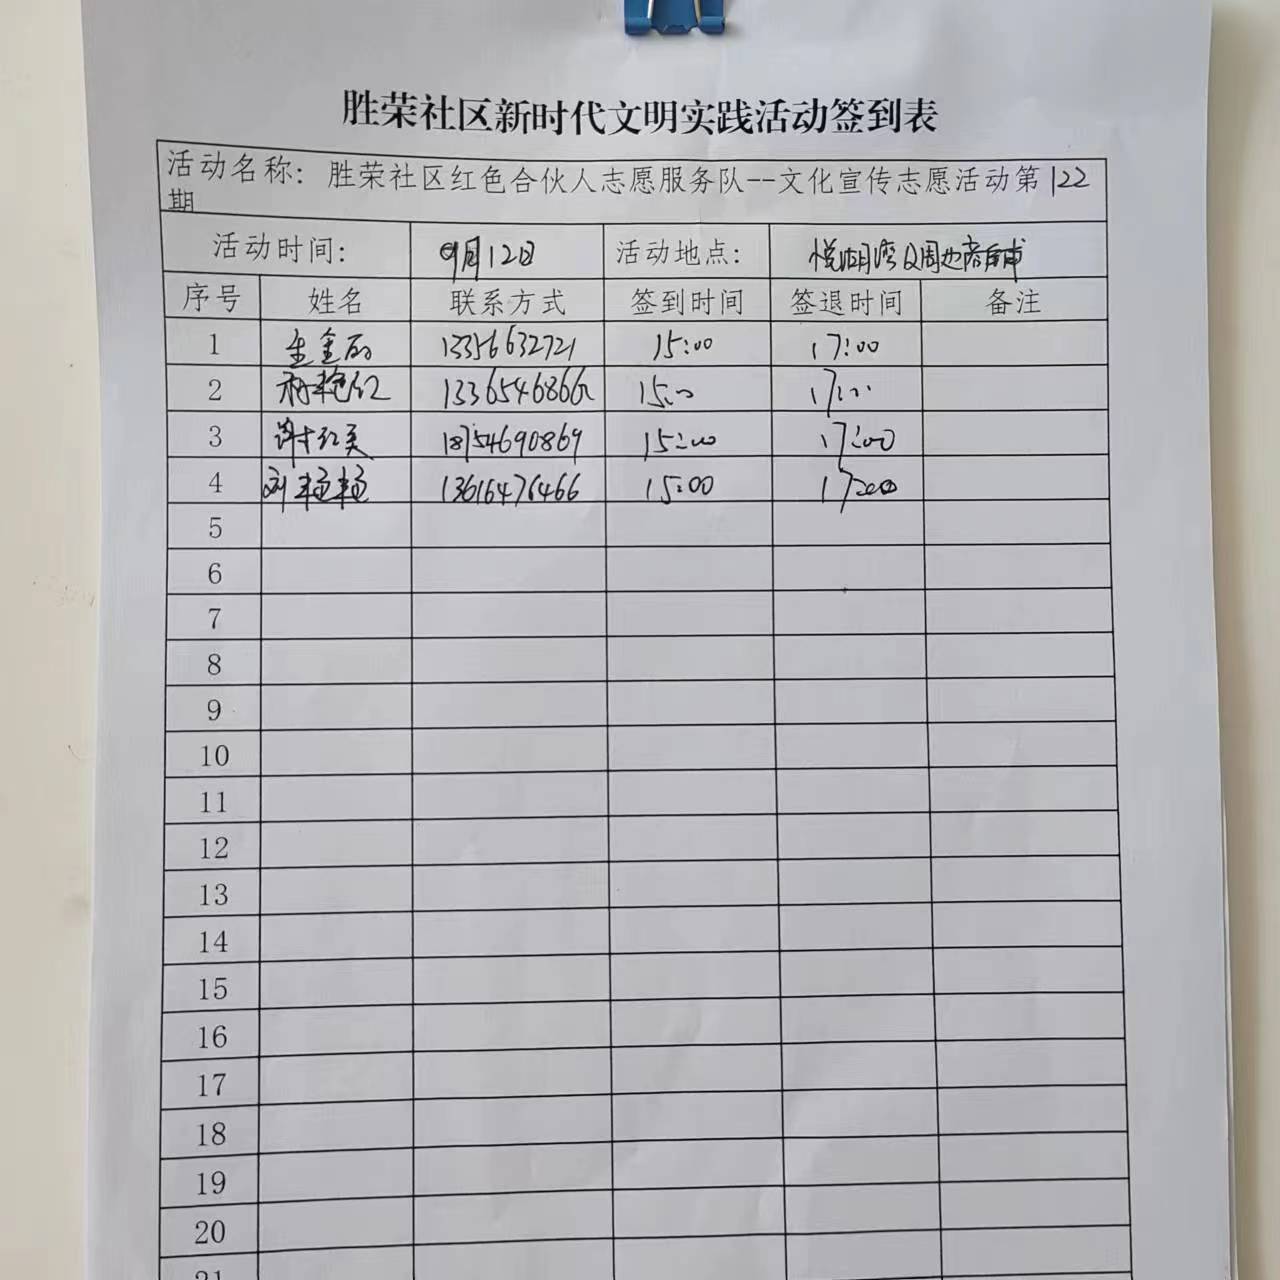 胜荣社区新时代文明实践活动签到表
活动名称：胜荣社区红色合伙人志愿服务队--文化宣传志愿活动第122
期
活动时间： 9月12日 活动地点： 悦湖湾及周边商铺
序号 姓名 联系方式 签到时间 签退时间 备注
1 13356632721 15:00 17:00
2 艳红 1336546866 15:00 17:00
3 谢红美 18754690869 15:00 17:00
4 刘艳艳 13616476466 15:00 17:00
5
6
7
8
9
10
11
12
13
14
15
16
17
18
19
20
21